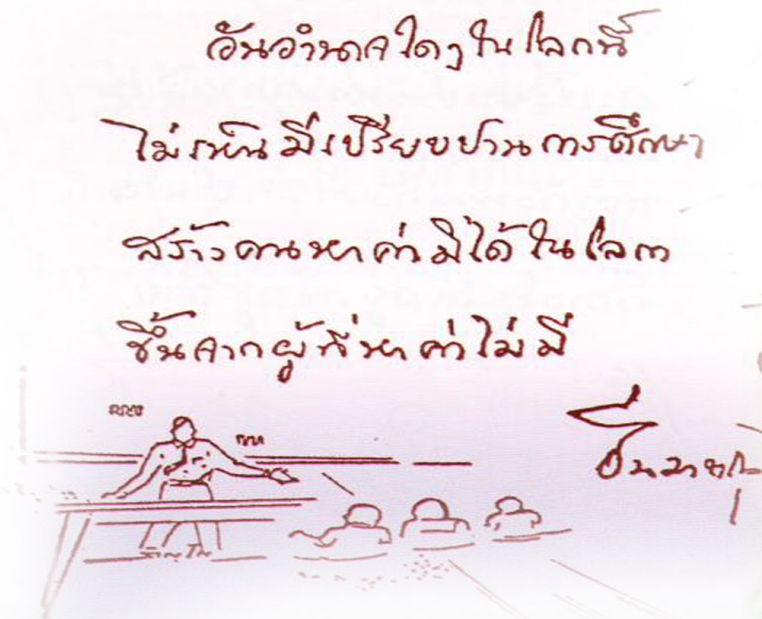 อันอำนาจใดๆในโลกนี้
ไม่เห็นมีเปรียบปานการศึกษา
สร้างคนหาค่ามิได้ในโลกา
ขึ้นจากผู้ที่หาค่าไม่มี